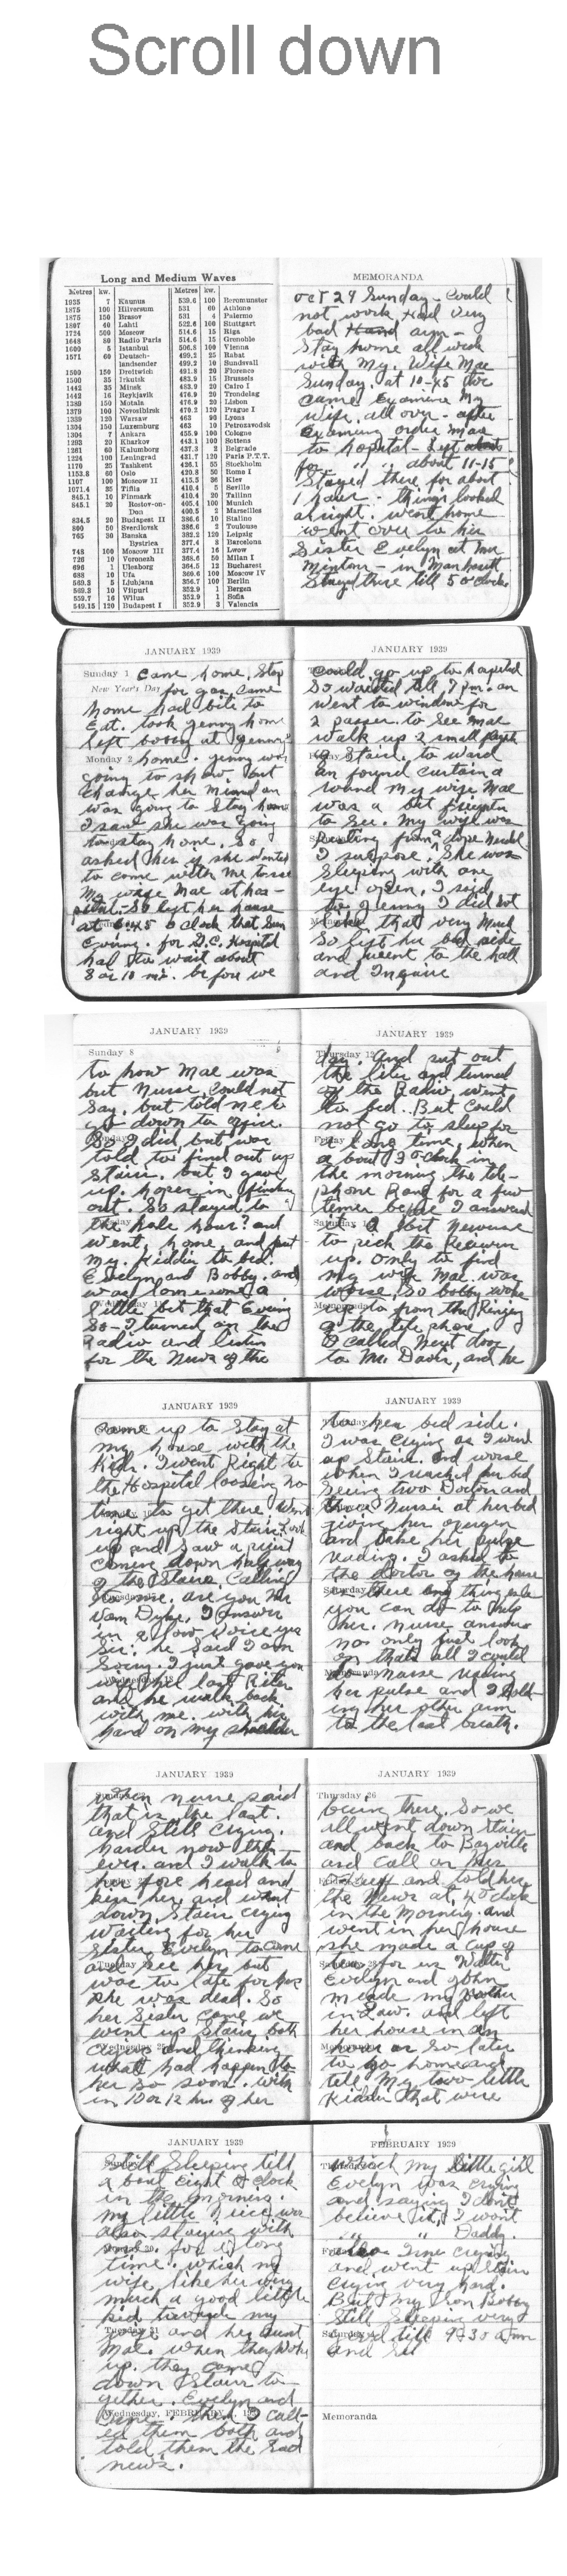 Scroll down
Long and Medium Waves
Metres kw. Metres kw.
1935 7 Kaunus 539.6 100 Beromunster
1875 100 Hilversum 531 60 Athlone
1875 150 Brasov 531 4 Palermo
1807 40 Lahti 522.6 100 Stuttgart
1724 500 Moscow 514.6 15 Riga
1648 80 Radio Paris 514.6 15 Grenoble
1600 5 Istanbul 506.8 100 Vienna
1571 60 Deutsch- 499.2 25 Rabat
landsender 499.2 10 Sundsvall
1500 150 Droitwich 491.8 20 Florence
1500 35 Irkutsk 483.9 15 Brussels
1442 35 Minsk 483.9 20 Cairo I
1442 16 Reykjavik 476.9 20 Trondelag
1389 150 Motala 476.9 20 Lisbon
1379 100 Novosibirsk 470.2 120 Prague I
1339 120 Warsaw 463 90 Lyons
1304 150 Luxemburg 463 10 Petrozavodsk
1304 7 Ankara 455.9 100 Cologne
1293 20 Kharkov 443.1 100 Sottens
1261 60 Kalumborg 437.3 2 Belgrade
1224 100 Leningrad 431.7 120 Paris P.T.T.
1170 25 Tashkent 426.1 55 Stockholm
1153.8 60 Oslo 420.8 50 Roma I
1107 100 Moscow II 415.5 36 Kiev
1071.4 35 Tiflis 410.4 5 Seville
845.1 10 Finmark 410.4 20 Tallinn
845.1 20 Rostov-on- 405.4 100 Munich
Don 400.5 2 Marseilles
834.5 20 Budapest II 386.6 10 Stalino
800 50 Sverdlovsk 386.6 2 Toulouse
765 30 Banska 382.2 120 Leipzig
Bystrica 377.4 8 Barcelona
748 100 Moscow III 377.4 16 Lwow
726 10 Voronezh 368.6 50 Milan I
696 1 Uleaborg 364.5 12 Bucharest
688 10 Ufa 360.6 100 Moscow IV
569.3 5 Ljubjana 356.7 100 Berlin
569.3 10 Viipuri 352.9 1 Bergen
559.7 16 Wilna 352.9 1 Sofia
549.15 120 Budapest I 352.9 3 Valencia
MEMORANDA
OCT 29 Sunday - Could
not work Had Very
bad Hand arm -
Stay home all week
with My. Wife Mae
Sunday. at 10-45 Doc
came Examine My
wife all over - after
Examing order Mae
to hospital - Left about
for " " about 11-15
Stayed there for about
1 hour - things looked
alright. went home
went over to her
Sister Evelyn at
in Manhasett
Stayed there till 5 o clock.
JANUARY 1939
Sunday 1 came home. Stop
New Year's Day for gas. came
home had bite to
Eat. took Jenny home
left bobby at Jenny's
Monday 2 home. Jenny was
going to show. but
change her Mind an
was going to Stay home
I saw she was going
to stay home. So
asked her if she wanted
to come with me to see
My wife Mae at hos-
pital. So left her house
at 6:45 o clock that Sun
Evning. for Hospital
had to wait about
8 or 10 mi. before we
JANUARY 1939
could go up to hospital
So waited till 7 pm. an
went to window for
2 passes. to See Mae
walk up 2 small flight
of Stairs. to ward
an found curtain a
round my wife Mae
was a bit frighten
to See. My wife was
from a dope needel
I suppose. She was
Sleeping with one
eye open, I said
to Jenny I did not
like that very Much
So left her bed side
and went to the hall
and Inquire
JANUARY 1939
Sunday 8
to how Mae was
but Nurse could not
Say. but told me to
go down to office.
So I did but was
told to find out up
Stairs. but I gave
up. hopes in finding
out. So stayed to
the hole hour? and
went home and put
my. Kiddies to bed.
Evelyn and Bobby. and
was lonesome a
little bit that Evening
So - I turned on the
Radio and listen
for the News of the
JANUARY 1939
Thursday 12
day. And put out
the lites and turned
off the Radio. went
to bed.. But could
not go to sleep for
a long time, when
about 3 o clock in
the morning the tele-
phone Rang for a few
times before I answerd
it. A bit Nervouse
to pick the Reciver
up. Only to find
my wife Mae was
worse. So bobby woke
up to from the Ringing
of the telephone.
I called Next door
to Mr. Davis, and he
JANUARY 1939
came up to Stay at
my house with the
Kids. I went Right to
the Hospital loosing no
time to get there. Went
right up the Stairs. Look
up and saw a priest
coming down half way
of the Stairs. Calling
to me. are you Mr
Van Dyke. I answer
in a low voice yes
Sir. he said I am
Sorry. I just gave your
wife her last Rites
and he walk back
with me. with his
hand on my shoulder
JANUARY 1939
to her bed side.
I was crying as I went
up Stairs. and worse
when I reached her bed
Seeing two Doctors and
three Nurses at her bed
giving her oxygen
and take her pulse
reading. I asked to
the doctor of the house
is there any thing else
you can do to help
her. Nurse answer
no. only just look
on thats all I could
do Nurse
her pulse and I hold-
ing her other arm
to the last breath.
JANUARY 1939
when nurse said
that is the last.
and Still crying.
harder now then
ever. and I walk to
her fore head and
kiss her and went
down Stair crying
waiting for her
Sister Evelyn to come
and See her but
was to late for
She was dead. So
her Sister came we
went up Stairs both
crying and thinking
what had happen to
her so soon. with
in 10 or 12 hr. of her
JANUARY 1939
Thursday 26
being there. So we
all went down Stairs
and back to Bayville
and Call on Mrs
and told her
the News at 4 o clock
in the Morning. and
went in her house
she made a cup of
for us Walter
Evelyn and John
Meade my brother
in Law. and left
her house in an
hour or So later
to go home and
tell My two little
Kiddies that were
JANUARY 1939
Still Sleeping till
about Eight O clock
in the morning.
my little Niece was
also staying with
us. for a long
time. which my
wife like her very
much a good little
kid
and her aunt
Mae. when they Woke
up. they came
down Stairs to-
gether. Evelyn and
then I call-
ed them both and
told them the Sad
news.
FEBRUARY 1939
which my little girl
Evelyn was crying
and saying I dont
believe it, I wont
" " Daddy.
crying
and went up Stair
crying very hard.
But my Son Bobby
Still Sleeping very
good till 9:30 a.m
and
Memoranda